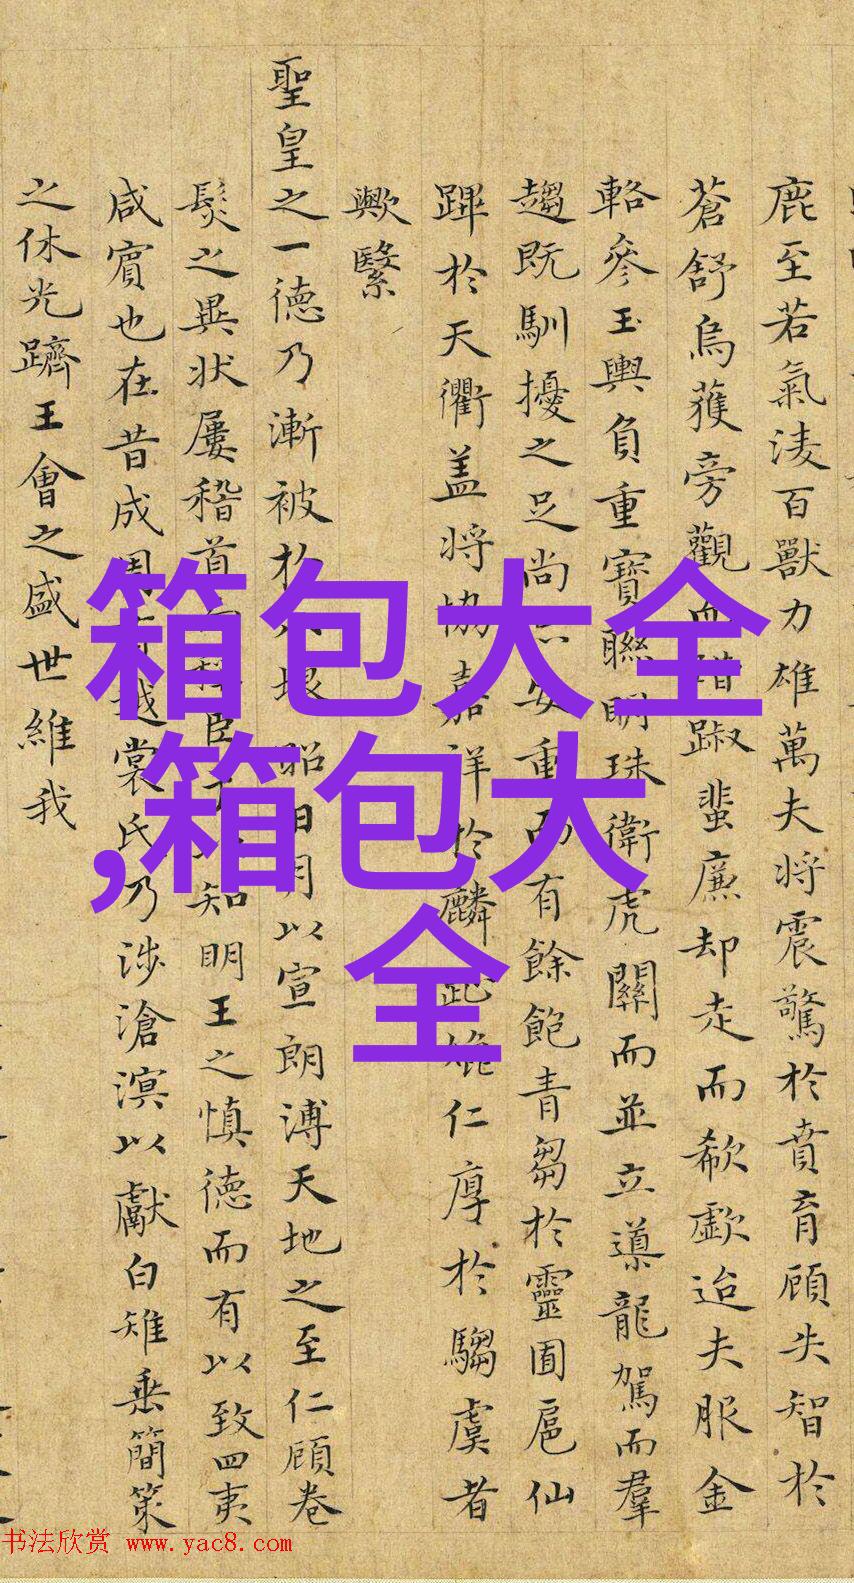 鹿至若氣淩百獸力雄萬夫將震驚於賁育顧失智於
蒼舒烏獲旁觀而踖踧蜚廉却走而欷歔迨夫服金
輅參玉輿負重寶聯明珠衛虎闈而並立導龍駕而羣
趨既馴擾之足尚亦安重而有餘飽青芻於靈囿扈仙
蹕於天衢蓋將協嘉祥於麟趾施仁厚於騶虞者
歟繄
聖皇之一德乃漸被於八垠昭日月以宣朗溥天地之至仁顧卷
髮之異状屢稽首而稱臣知明王之慎德而有以致四夷
咸賓也在昔成周有越裳氏乃涉滄溟以獻白雉垂簡策
之休光躋王會之盛世維我
箱包大全
,箱包大
全
书法欣赏 www.yac8.com